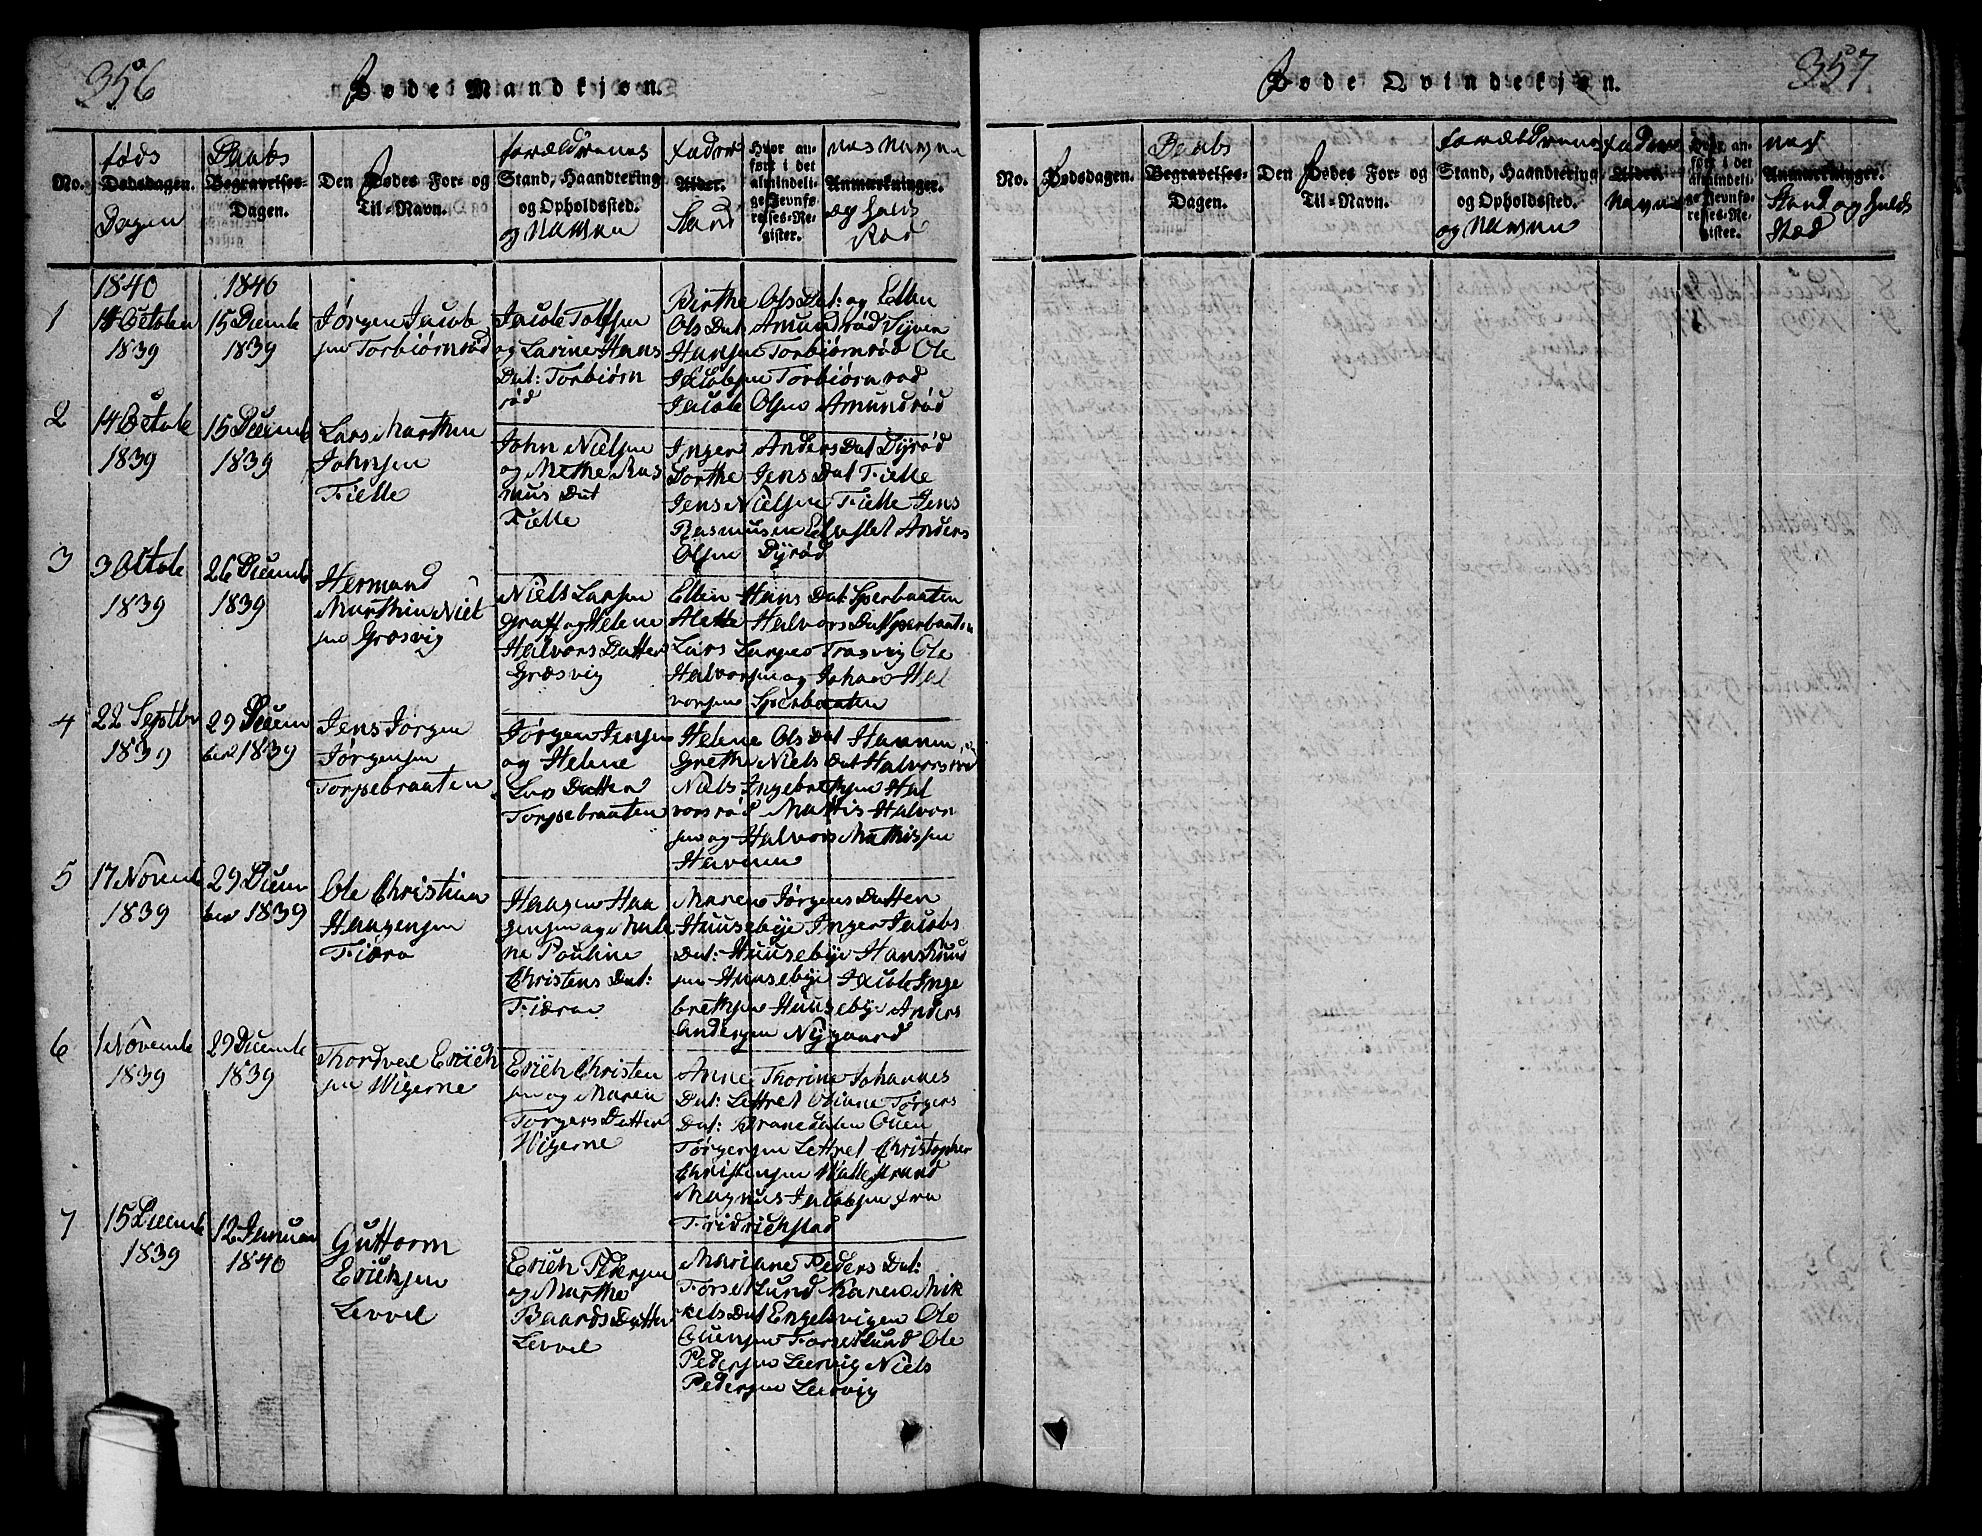 356
Føde Mandkjøn.
No.
føds
Dødsdagen.
Dagen
Daabs
Begravelses-
Dagen.
Den Fødes For- og
Til-Navn.
forældrenes
Stand, Haandtering
og Opholdsstед.
og Navne
Fader
Alder.
Stand
Hvor an-
ført i det
almindeli-
ge Jevnfø-
relses-Re-
gister.
nes Navne
Anmærkninger.
og
1840
1840
1
14 Octobr
1839
15 Decemb
1839
Jørgen Jacob
sen Torbiørnrød
Jacob Tolfsen
og Larine Hans
Dat: Torbiørn
rød
Birthe Ols Dat: og Ellen
Ols Dat Amundrød Syver
Hansen Torbiørnrød Ole
Jacobsen Torbiørnrød
Jacob Olsen Amundrød
2
14 Octob
1839
15 Decemb
1839
Lars Marthin
Johnsen
Fielle
John Nielsen
og Methe Ras
mus Dat
Fielle
Inger Anders Dat Dyrød
Dorthe Jens Dat Fielle
Jens Nielsen Fielle Jens
Rasmusen Anders
Olsen Dyrød
3
3 Octob
1839
26 Decemb
1839
Hermand
Marthin Niel
sen Græsvig
Niels Larsen
Graf og Helene
Halvors Datter
Græsvig
Ellen Hans Dat Sperbaaten
Alette Halvors Dat Sperbaaten
Lars Larsen Trasvig Ole
Halvorsen og Johan Hal
vorsen Sperbaaten
4
22 Septbr
1839
29 Decem
ber 1839
Jens Jørgen
Jørgensen
Torpebraaten
Jørgen Jensen
og Helene
Lars Datter
Torpebraaten
Helene Ols Dat Haven
Grethe Niels Dat Halvorsrød
Niels Ingebrethsen Hal
vorsrød Mattis Halvor
sen og Halvor Mathisen
Haven
5
17 Novemb
1839
29 Decem
ber 1839
Ole Christian
Haagensen
Fiæra
Haagen Haa
gensen og Mali
ne Pauline
Christens Dat:
Fiæra
Maren Jørgens Datter
Huusebye Inger Jacobs
Dat: Huusebye Hans Knud
sen Huusebye Jacob Inge
brethsen Huusebye Anders
Andersen Nygaard
6
1 Novemb
1839
29 Decemb
1839
Thordvel Erich
sen Wigerne
Erich Christen
sen og Maren
Torgers Datter
Wigerne
Anne Thorine Johannes
Dat: Lettret Oliane Tørgers
Dat: Kranedalen Ouen
Tørgersen Lettret Christopher
Christensen Wallestrand
Magnus Jacobsen fra
Fridrichstad
7
15 Decemb
1839
12 Januar
1840
Guttorm
Erichsen
Levvel
Erich Pedersen
og Marthe
Baards Datter
Levvel
Mariane Peders Dat:
Forsetlund Karen Mik
kels Dat Engelsvigen Ole
Ouensen Forsetlund Ole
Pedersen Leervig Niels
Pedersen Leervig
357
Føde Qvindekjøn.
No.
Fødsdagen.
Daabs
Begravelses-
Dagen.
Den Fødes For- og
Til-Navn.
forældrenes
Stand, Haandtering
og Opholdssted.
og Navne
Fadder
Alder.
Navne
Hvor an-
ført i det
almindeli-
ge Jevnfø-
relses-Re-
gister.
nes
Anmærkninger.
Stand og
Sted